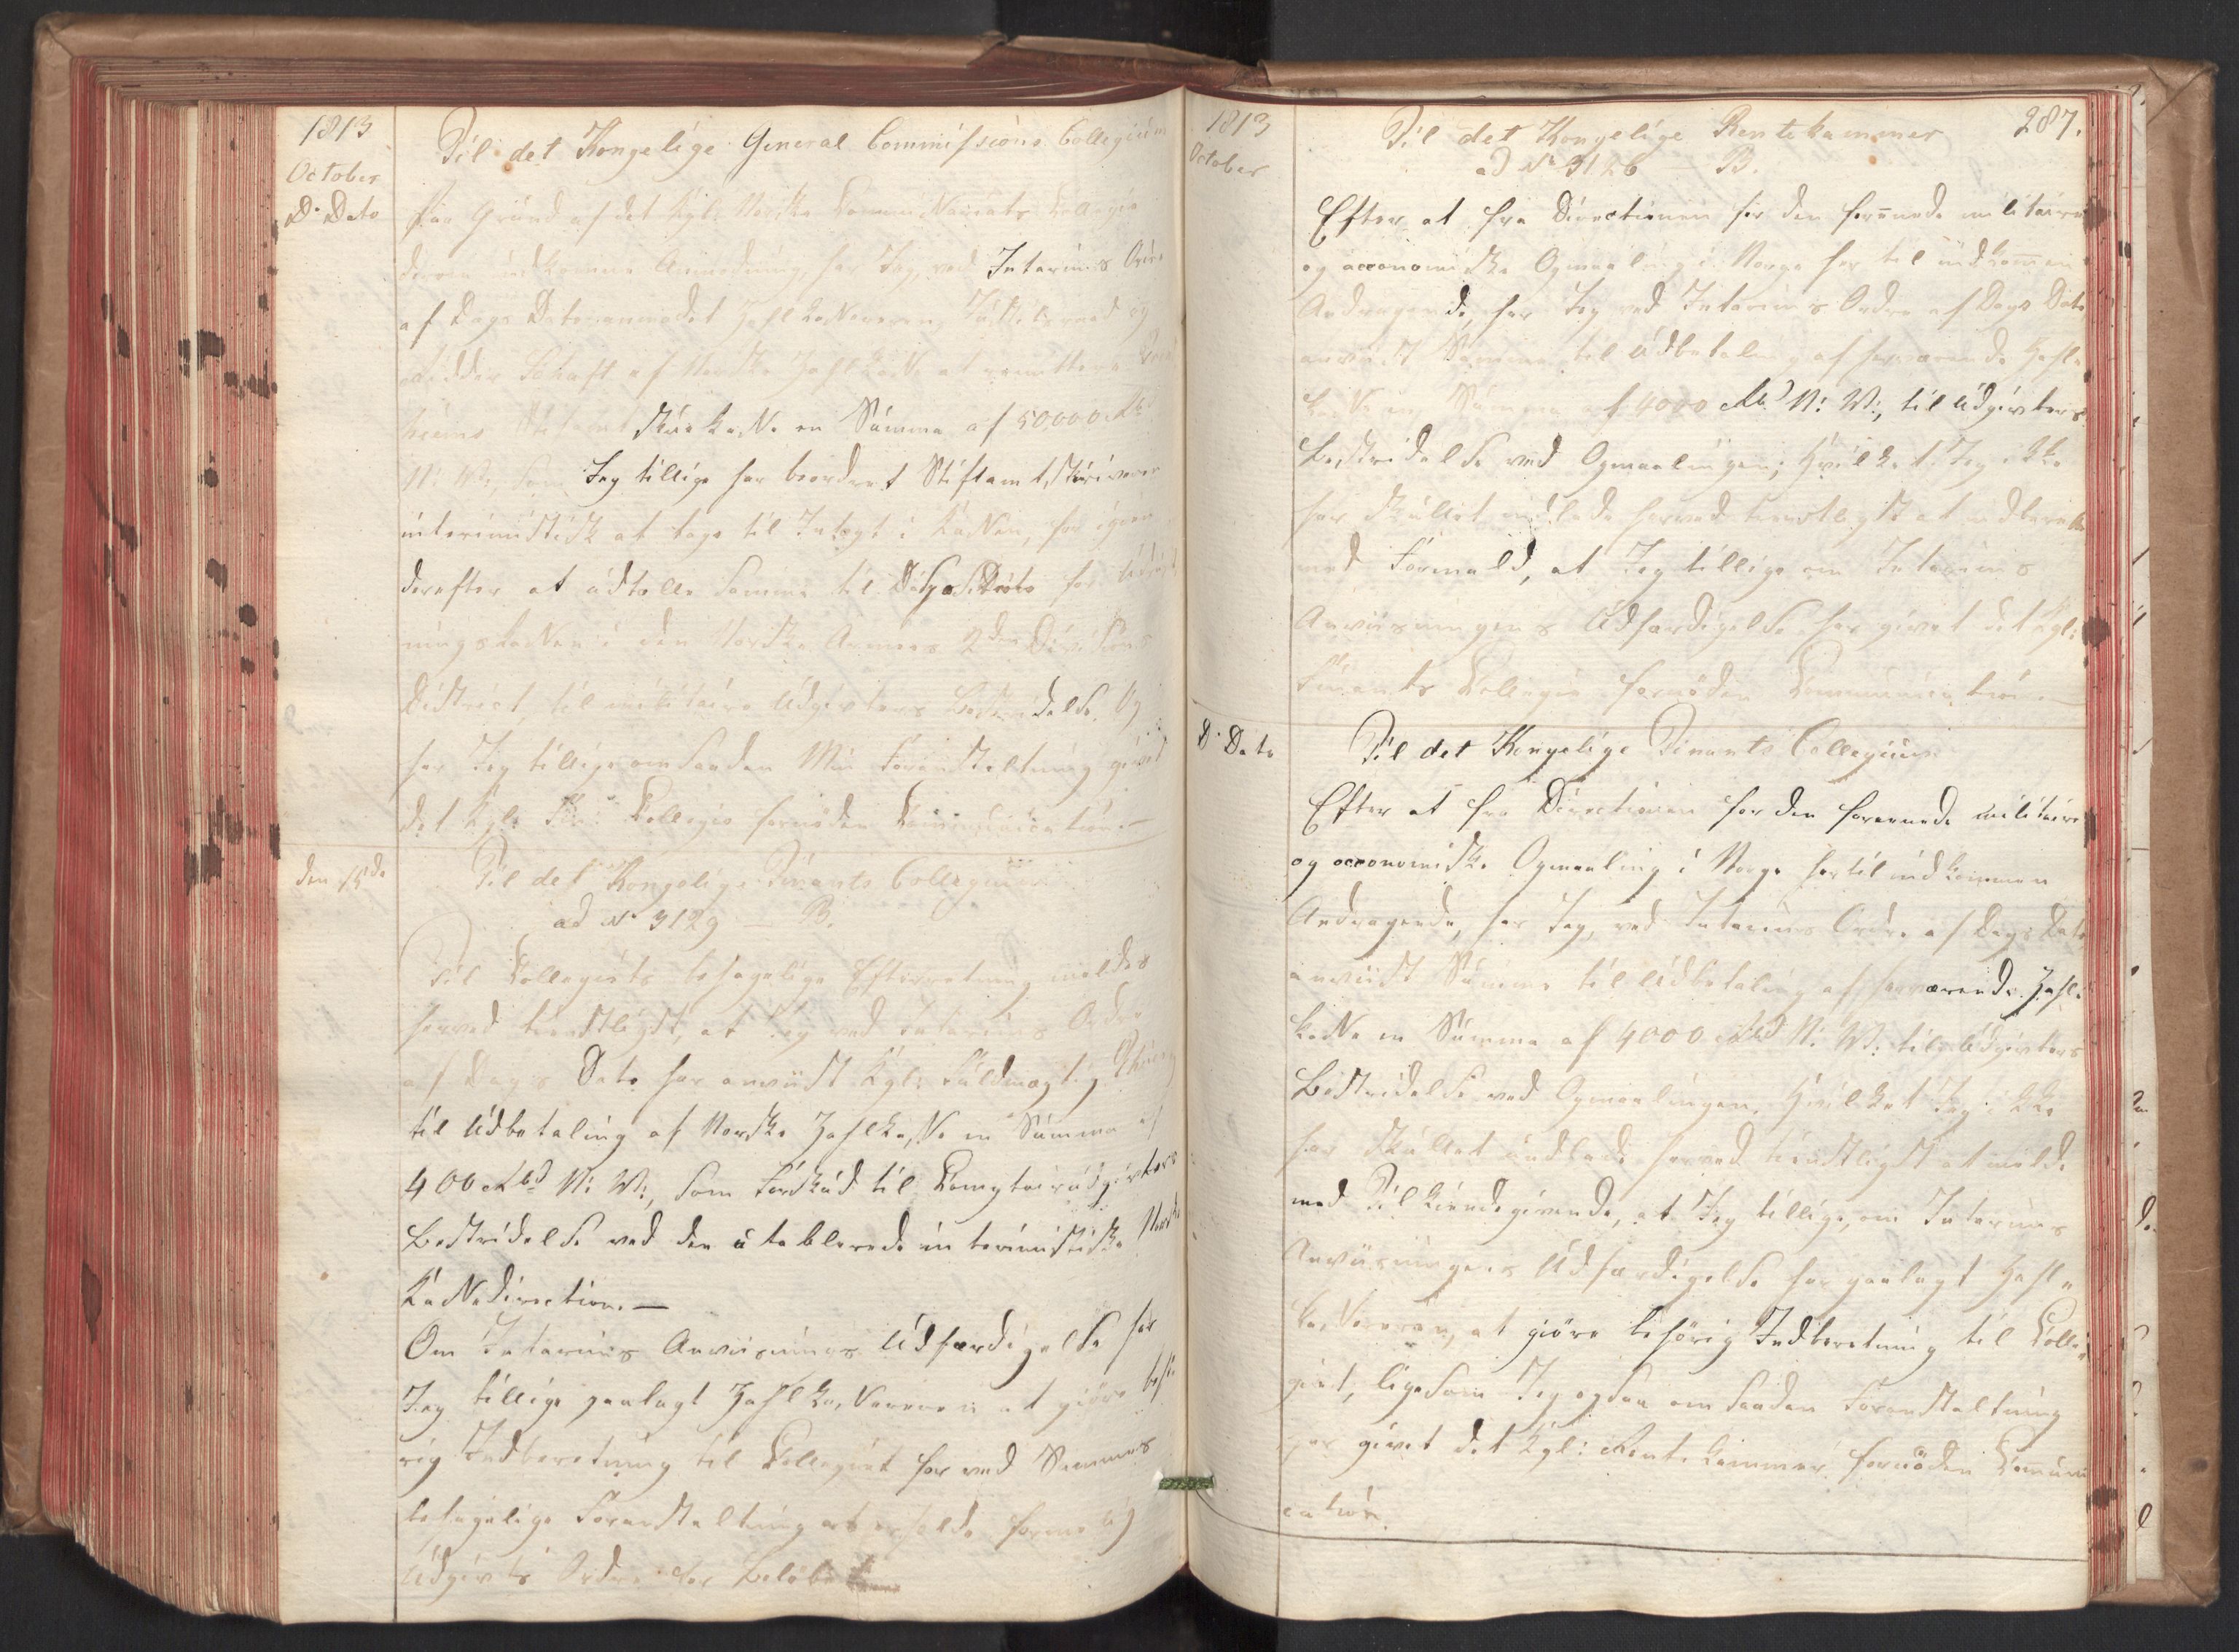 1813
October
D. Dato
Til det Kongelige General Commissions Collegium
Paa Grund af det Kgl: Norske Commissariats Collegio
derom indkomne Anmodning, har Jeg, ved Interims Ordre
af Dags Dato anmodet Zahlkasserer, Justitsraad og
Ridder Schaft af Norske Zahlkasse at remittere
Stiftamtstuekasse en Summa af 50000 Rbd
N: V:, som Jeg tillige har beordret Stiftamtskriveren
interimistisk at tage til Indtægt i Kassen, for igien
derefter at udtælle samme til Disposition for
ningskassen i den Norske Armees 2den Divisions
District, til militaire Udgivters Bestridelse. Og
har Jeg tillige om saadan Min Foranstaltning givet
det Kgl: Fin: Collegio fornøden Communication.—
den 15de
Til det Kongelige Finants Collegium
ad No 3129 B.
Til Collegiets behagelige Efterretning meldes
herved tienstligst, at Jeg ved Interims Ordre
af Dags Dato har anviist Kgl: Fuldmægtig
til Udbetaling af Norske Zahlkasse en Summa af
400 Rbd N: V:, som Forskud til Comptoirudgivters
Bestridelse ved den etablerede interimistiske Norske
Kassedirection.—
Om Interims Anviisnings Udfærdigelse har
Jeg tillige paalagt Zahlkassereren at giøre behø-
rig Indberetning til Collegiet for ved Sammes
behagelige Foranstaltning at erholde formelig
Udgivts Ordre for Beløbet
1813
October
287.
Til det Kongelige Rentekammer
ad No 3126 B.
Efter at fra Directionen for den forenede militaire
og oeconomiske Opmaaling i Norge her til indkommen
Andragende, har Jeg ved Interims Ordre af Dags Dato
anviist Samme til Udbetaling af herværende Zahl-
kasse en Summa af 4000 Rbd N: V:, til Udgivters
Bestridelse ved Opmaalingen; hvilket Jeg ikke
har skullet undlade herved tienstligst at indberette
med Formeld, at Jeg tillige om Interims
Anviisningens Udfærdigelse har givet det Kgl:
Finants Collegio fornøden Communication.—
D. Dato
Til det Kongelige Finants Collegium
Efter at fra Directionen for den forenede militaire
og oeconomiske Opmaaling i Norge hertil indkommen
Andragende, har Jeg, ved Interims Ordre af Dags Dato
anviist Samme til Udbetaling af herværende Zahl-
kasse en Summa af 4000 Rbd N: V: til Udgivters
Bestridelse ved Opmaalingen. Hvilket Jeg ikke
har skullet undlade herved tienstligst at melde
med Tilkiendegivende, at Jeg tillige, om Interims
Anviisningens Udfærdigelse har paalagt Zahl-
kassereren, at giøre behørig Indberetning til Colle-
giet, ligesom Jeg ogsaa om saadan Foranstaltning
har givet det Kgl: Rentekammer fornøden Communi
cation.